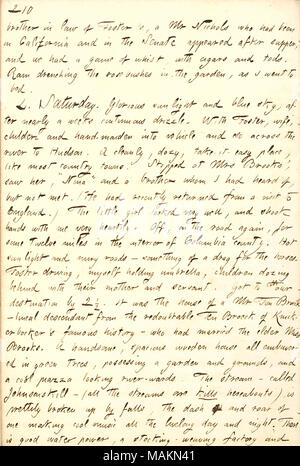 210
brother in law of Foster's, a Mr Nichols who had been
in California and in the Senate appeared after supper,
and we had a game of whist, with cigars and tods.
Rain drenching the rosebushes in the garden, as I went to
bed.
2. Saturday. Glorious sunlight and blue sky, af-
ter nearly a week's continuous drizzle. With Foster, wife,
children and handmaiden into vehicle and etc across the
river to Hudson. A cleanly, dozy, take it easy place,
like most country towns. Stopped at Mrs Brooks',
saw her, "Nina" and a brother whom I had heard of,
but not met. (He had recently returned from a visit to
England.) The little girl looked very well, and shook
hands with me very heartily. Off, on the road again, for
some twelve miles in the interior of Columbia County. Hot
sunlight and miry roads — something of a drag for the horses.
Foster driving, myself holding umbrella, children dozing
behind with their mother and servant. Got to our
destination by 2 ½. It was the house of a Mr Ten Broeck
— lineal descendant from the redoubtable Ten Broeck of Knick-
erbocker's famous history — who had married the elder Miss
Brooks. A handsome, spacious wooden house all embower-
ed in green trees, possessing a garden and grounds, and
a cool piazza looking river-wards. The stream — called
Johnanskill — (all the streams are kills hereabouts) is
prettily broken up by falls, the dash and roar of
one making cool music all the livelong day and night. There
is good water power, a stocking-weaving factory and
alamy
Image ID: MAKN41
www.alamy.com